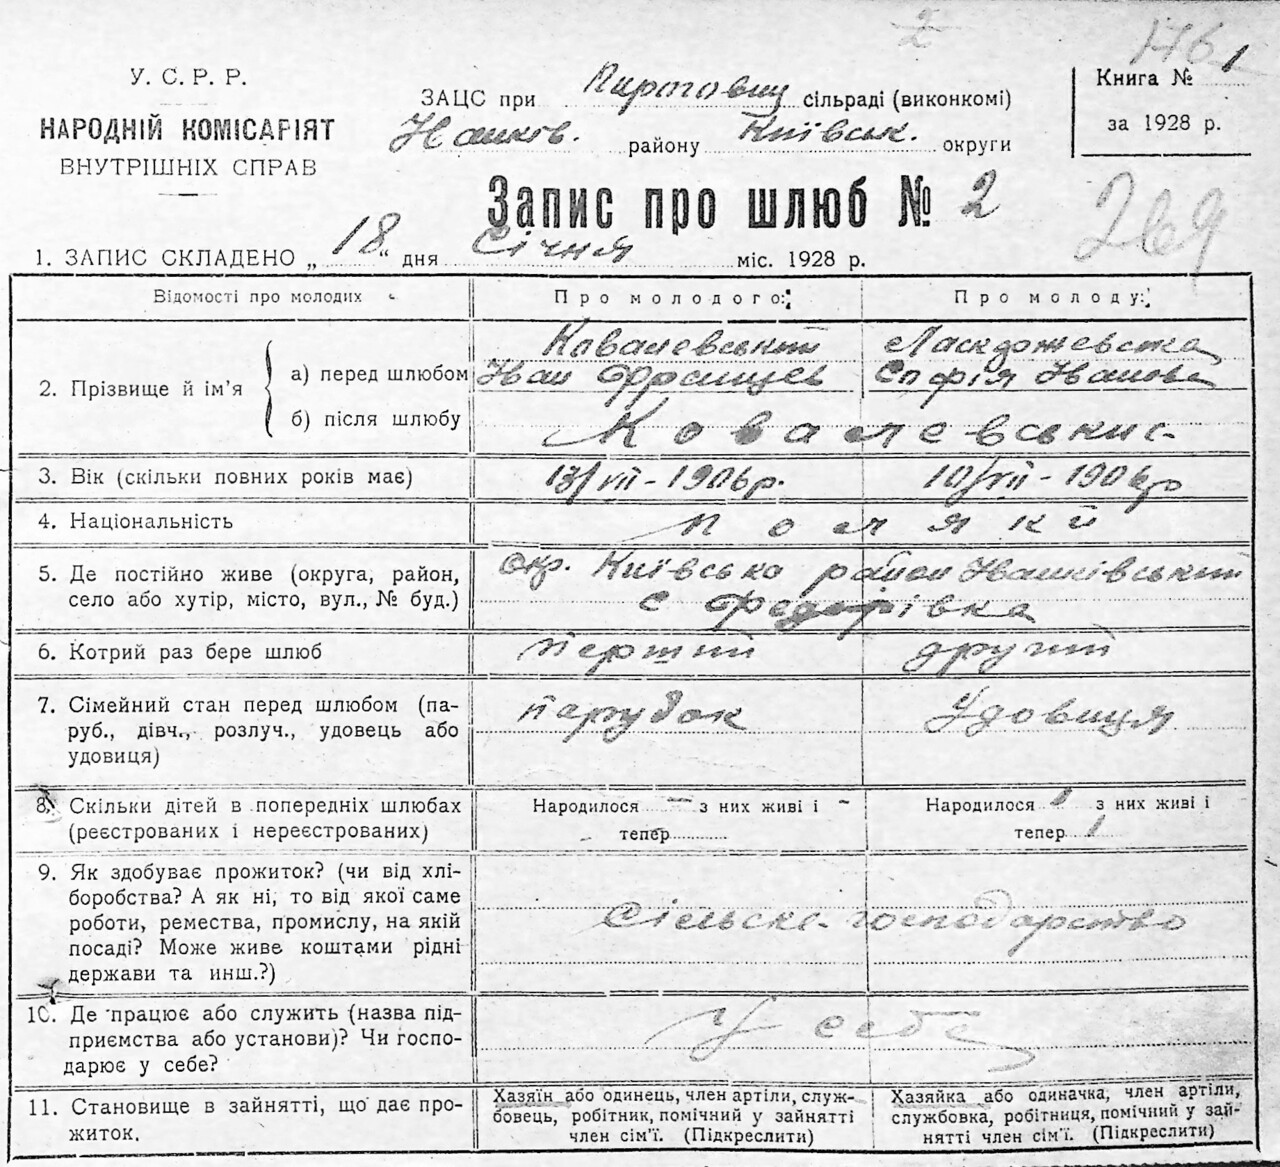 2
176 1
У. С. Р. Р.
НАРОДНІЙ КОМІСАРІЯТ
ВНУТРІШНІХ СПРАВ
ЗАЦС при сільраді (виконкомі)
району Київськ. округи
Книга №
за 1928 р.
Запис про шлюб № 2
1. ЗАПИС СКЛАДЕНО „ 18 “ дня Січня міс. 1928 р.
Відомості про молодих
Про молодого:
Про молоду:
2. Прізвище й ім’я
а) перед шлюбом
б) після шлюбу
Ковалевський
Іван Францев
Софія Іванова
Ковалевськи
3. Вік (скільки повних років має)
13/VII - 1906 р.
10/VII - 1906 р
4. Національність
поляки
5. Де постійно живе (округа, район,
село або хутір, місто, вул., № буд.)
Окр. Київська район Івашківський
с Федорівка
6. Котрий раз бере шлюб
перший
другий
7. Сімейний стан перед шлюбом (па-
руб., дівч., розлуч., удовець або
удовиця)
парубок
Удовиця
8. Скільки дітей в попередніх шлюбах
(реєстрованих і нереєстрованих)
Народилося — з них живі і –
тепер
Народилося 1 з них живі і
тепер 1
9. Як здобуває прожиток? (чи від хлі-
боробства? А як ні, то від якої саме
роботи, ремества, промислу, на якій
посаді? Може живе коштами рідні
держави та инш.?)
Сільске-господарство
10. Де працює або служить (назва під-
приємства або установи)? Чи госпо-
дарює у себе?
У себе
11. Становище в зайнятті, що дає про-
житок.
Хазяїн або одинець, член артіли, служ-
бовець, робітник, помічний у зайнятті
член сім’ї. (Підкреслити)
Хазяйка або одиначка, член артіли,
службовка, робітниця, помічний у зай-
нятті член сім’ї. (Підкреслити)